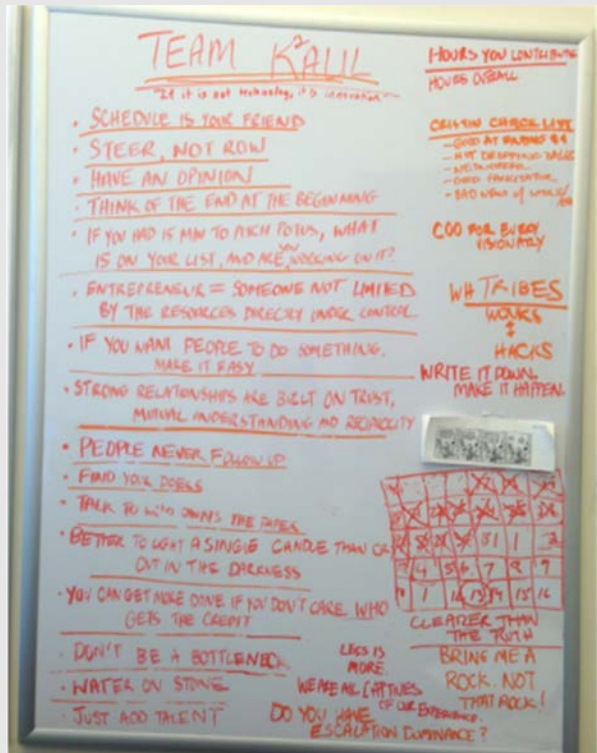 TEAM K²ALIL
"If it is not technology, it is
· SCHEDULE IS YOUR FRIEND
· STEER, NOT ROW
· HAVE AN OPINION
· THINK OF THE END AT THE BEGINNING
· IF YOU HAD 15 MIN TO PITCH POTUS, WHAT
IS ON YOUR LIST, AND ARE YOU WORKING ON IT?
· ENTREPRENEUR = SOMEONE NOT LIMITED
BY THE RESOURCES DIRECTLY UNDER CONTROL
· IF YOU WANT PEOPLE TO DO SOMETHING,
MAKE IT EASY
· STRONG RELATIONSHIPS ARE BUILT ON TRUST,
MUTUAL UNDERSTANDING AND RECIPROCITY
· PEOPLE NEVER FOLLOW UP
· FIND YOUR DOERS
· TALK TO WHO OWNS THE PAPER
· BETTER TO LIGHT A SINGLE CANDLE THAN
OUT IN THE DARKNESS
· YOU CAN GET MORE DONE IF YOU DON'T CARE WHO
GETS THE CREDIT
· DON'T BE A BOTTLENECK
· WATER ON STONE
· JUST ADD TALENT
HOURS YOU CONTRIBUTE
HOURS OVERALL
CRISTIN CHECK LIST
- GOOD AT FINDING $$
- NOT DROPPING BALLS
- GOOD FACILITATOR
- BAD NEWS
COO FOR EVERY
VISIONARY
WH TRIBES
WONKS
↕
HACKS
WRITE IT DOWN
MAKE IT HAPPEN
31 1
4 5 6 7 8 9
1 12 13 14 15 16
CLEARER THAN
THE TRUTH
LESS IS
MORE.
BRING ME A
ROCK. NOT
THAT ROCK!
WE ARE ALL CAPTIVES
OF OUR EXPERIENCE.
DO YOU HAVE
ESCALATION DOMINANCE?